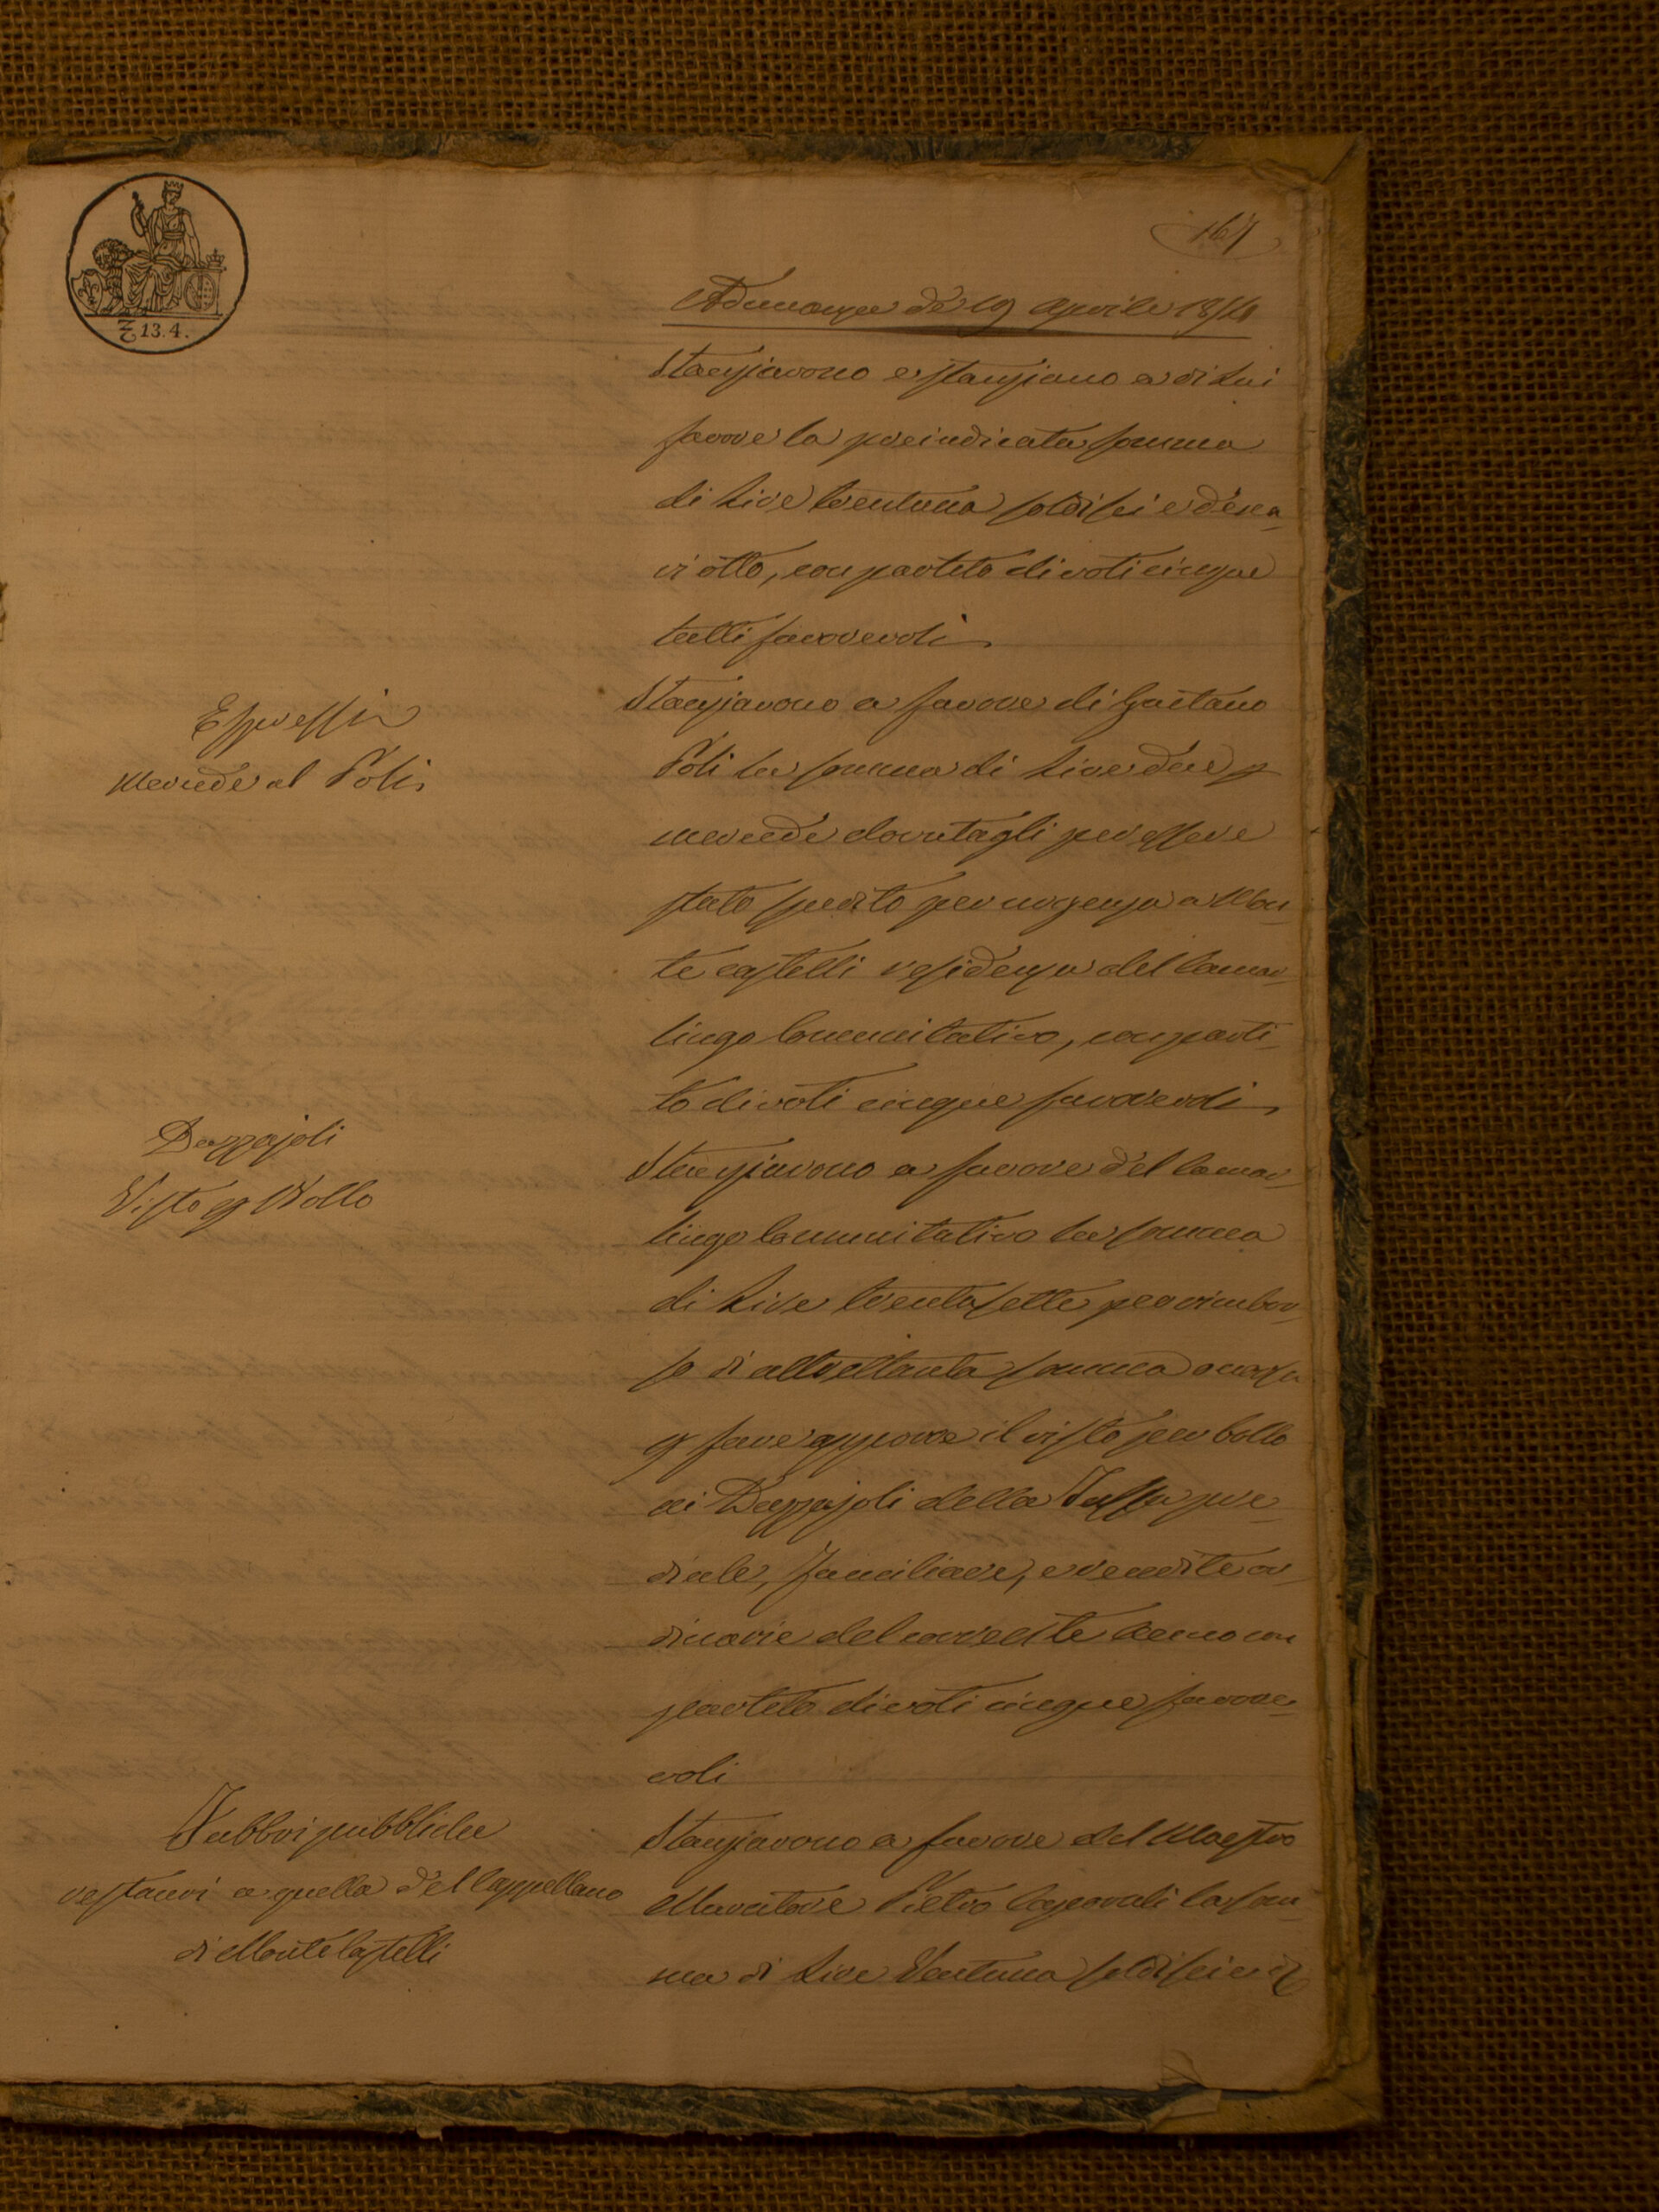 13.4.
167
Adunanza de 19 Aprile 1854
Stanziarono e stanziano a di lui
favore la preindicata somma
di Lire trentuna soldi sei e dena-
ri otto, con partito di voti cinque
tutti favorevoli
Espressi
Mercede al Poli
Stanziarono a favore di Gaetano
Poli la somma di Lire due p
mercede dovutagli per essere
stato spedito per urgenza a Mon-
te castelli residenza del Camar-
lingo Comunitativo, con parti-
to di voti cinque favorevoli
Dazzajoli
Visto p Bollo
Stanziarono a favore del Camar-
lingo Comunitativo la somma
di Lire trentasette per rimbor-
so di altrettanta somma
p fare apporre il visto per bollo
ai Dazzajoli della Tassa pre-
diale, familiare, e rendite or-
dinarie del corrente anno con
partito di voti cinque favore-
voli
Fabbriche pubbliche
restauri a quella del Cappellano
di Monte Castelli
Stanziarono a favore del Maestro
Muratore Pietro Caporali la som-
ma di Lire Ventuna soldi sei e